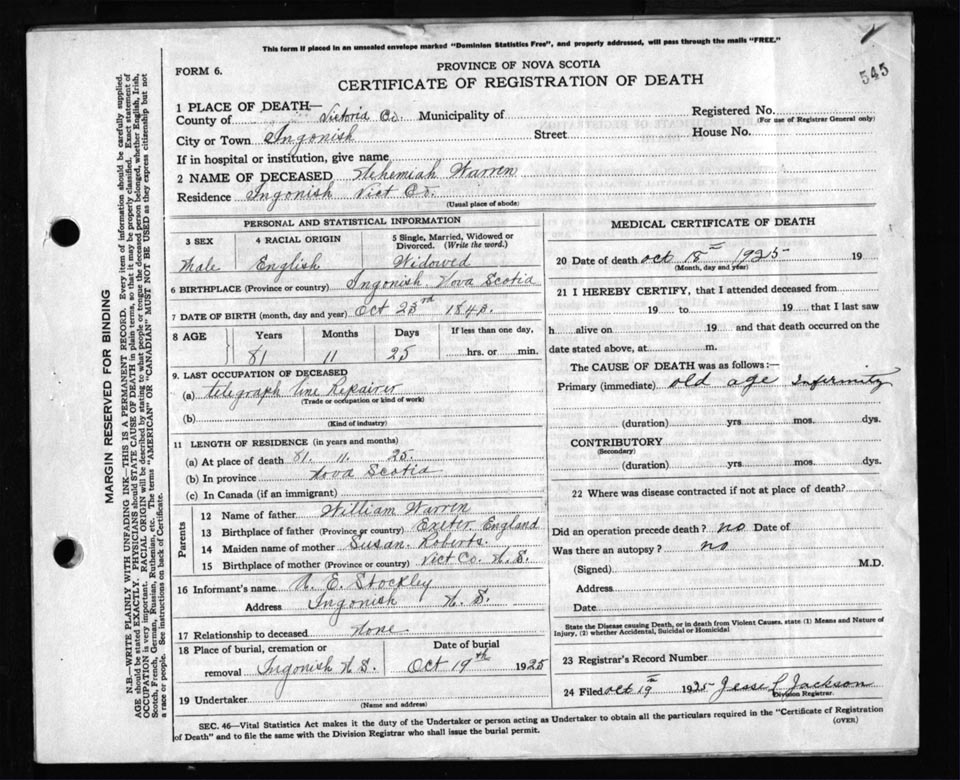 This form if placed in an unsealed envelope marked "Dominion Statistics Free", and properly addressed, will pass through the mails "FREE."
545
FORM 6.
PROVINCE OF NOVA SCOTIA
CERTIFICATE OF REGISTRATION OF DEATH
1 PLACE OF DEATH—
County of Victoria Co. Municipality of
Registered No.
(For use of Registrar General only)
City or Town Ingonish Street House No.
If in hospital or institution, give name
2 NAME OF DECEASED Nehemiah Warren
Residence Ingonish Vict Co.
(Usual place of abode)
PERSONAL AND STATISTICAL INFORMATION
3 SEX 4 RACIAL ORIGIN 5 Single, Married, Widowed or Divorced. (Write the word.)
Male English Widowed
6 BIRTHPLACE (Province or country) Ingonish Nova Scotia
7 DATE OF BIRTH (month, day and year) Oct 23rd
8 AGE Years Months Days If less than one day,
81 11 25 hrs. or min.
9. LAST OCCUPATION OF DECEASED
(a) telegraph line Repairer
(Trade or occupation or kind of work)
(b)
(Kind of industry)
11 LENGTH OF RESIDENCE (in years and months)
(a) At place of death 81. 11. 25.
(b) In province Nova Scotia
(c) In Canada (if an immigrant)
Parents
12 Name of father William Warren
13 Birthplace of father (Province or country) Exeter England
14 Maiden name of mother Susan Roberts.
15 Birthplace of mother (Province or country) Vict Co. N. S.
16 Informant's name E. Stockley
Address Ingonish N. S.
17 Relationship to deceased None
18 Place of burial, cremation or removal Ingonish N S. Date of burial Oct 19th 1925
19 Undertaker
(Name and address)
MEDICAL CERTIFICATE OF DEATH
20 Date of death Oct 18th 1925 19
(Month, day and year)
21 I HEREBY CERTIFY, that I attended deceased from
19 to 19 that I last saw
h alive on 19 and that death occurred on the
date stated above, at m.
The CAUSE OF DEATH was as follows:—
Primary (immediate) old age Infermity
(duration) yrs. mos. dys.
CONTRIBUTORY
(Secondary)
(duration) yrs. mos. dys.
22 Where was disease contracted if not at place of death?
Did an operation precede death? no Date of
Was there an autopsy? no
(Signed) M.D.
Address
Date
State the Disease causing Death, or in death from Violent Causes, state (1) Means and Nature of
Injury, (2) whether Accidental, Suicidal or Homicidal
23 Registrar's Record Number
24 Filed Oct 19th 1925 Jesse L Jackson
Division Registrar.
SEC. 46—Vital Statistics Act makes it the duty of the Undertaker or person acting as Undertaker to obtain all the particulars required in the "Certificate of Registration
of Death" and to file the same with the Division Registrar who shall issue the burial permit.
(OVER)
MARGIN RESERVED FOR BINDING
N.B.—WRITE PLAINLY WITH UNFADING INK—THIS IS A PERMANENT RECORD. Every item of information should be carefully supplied.
AGE should be stated EXACTLY. PHYSICIANS should STATE CAUSE OF DEATH in plain terms, so that it may be properly classified. Exact statement of
OCCUPATION is very important. RACIAL ORIGIN will be described by stating to what people or tongue the deceased person belonged, whether English, Irish,
Scotch, French, German, Russian, Ruthenian, etc. The terms "AMERICAN" OR "CANADIAN" MUST NOT BE USED as they express citizenship but not
a race or people. See instructions on back of Certificate.